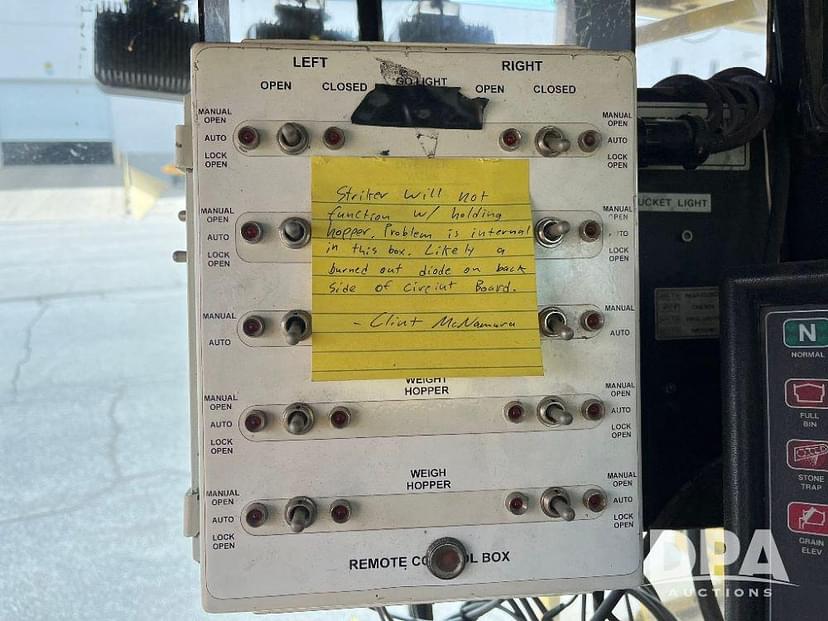 LEFT RIGHT
OPEN CLOSED GO LIGHT OPEN CLOSED
MANUAL OPEN
AUTO
LOCK OPEN
MANUAL OPEN
AUTO
LOCK OPEN
Striker will not
function w/ holding
hopper. Problem is internal
in this box. Likely a
burned out diode on back
side of circiut Board.
- Clint McNamara
MANUAL OPEN
AUTO
LOCK OPEN
MANUAL
AUTO
LOCK OPEN
BUCKET LIGHT
MANUAL
AUTO
MANUAL
AUTO
WEIGHT
HOPPER
MANUAL OPEN
AUTO
LOCK OPEN
MANUAL OPEN
AUTO
LOCK OPEN
WEIGH
HOPPER
MANUAL OPEN
AUTO
LOCK OPEN
MANUAL OPEN
AUTO
LOCK OPEN
REMOTE BOX
N
NORMAL
FULL
BIN
STONE
TRAP
GRAIN
ELEV
DPA
AUCTIONS